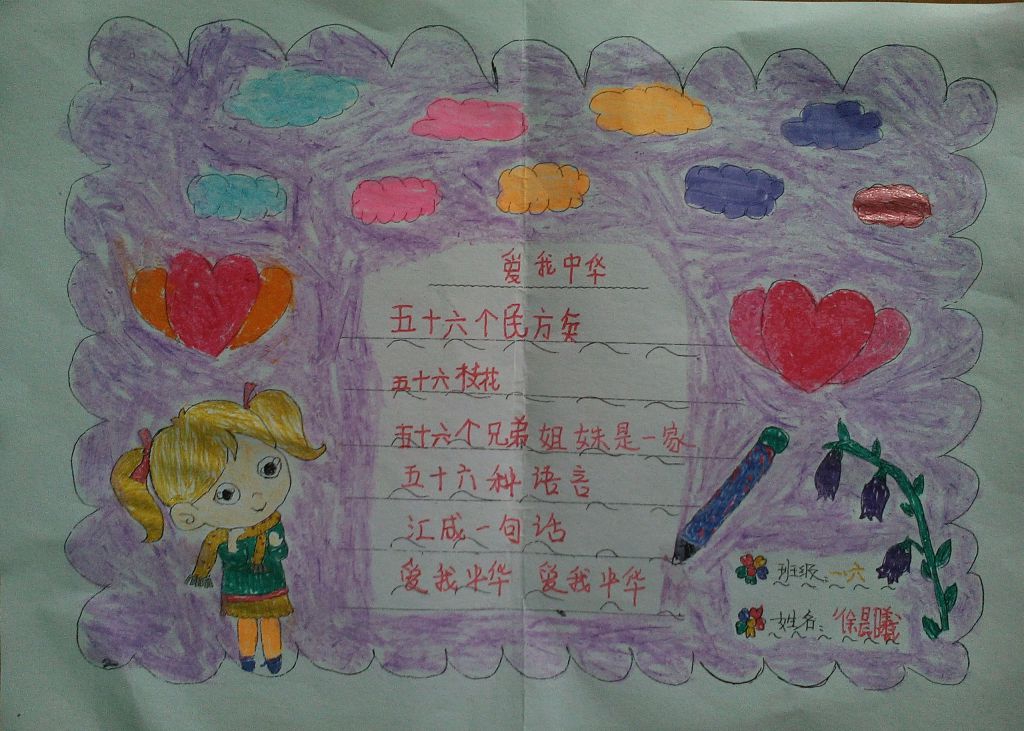 爱我中华
五十六个民方矣
五十六枝花
五十六个兄弟姐妹是一家
五十六种语言
汇成一句话
爱我中华 爱我中华
班级:一六
姓名:徐晨曦